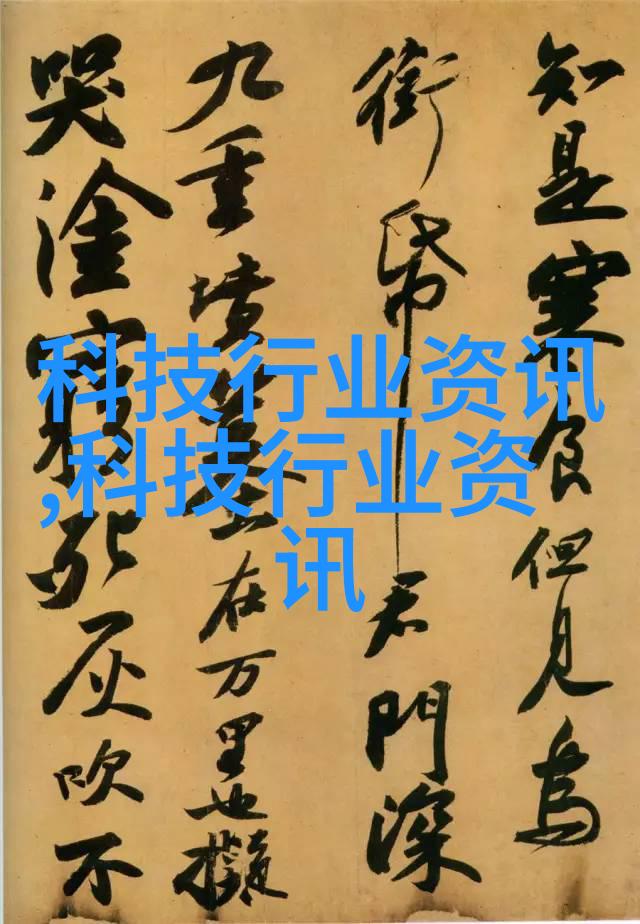 知是寒食但見烏
銜帋君門深
九重墳墓在万里也擬
哭塗窮死灰吹不
科技行业资讯
,科技行业资
讯